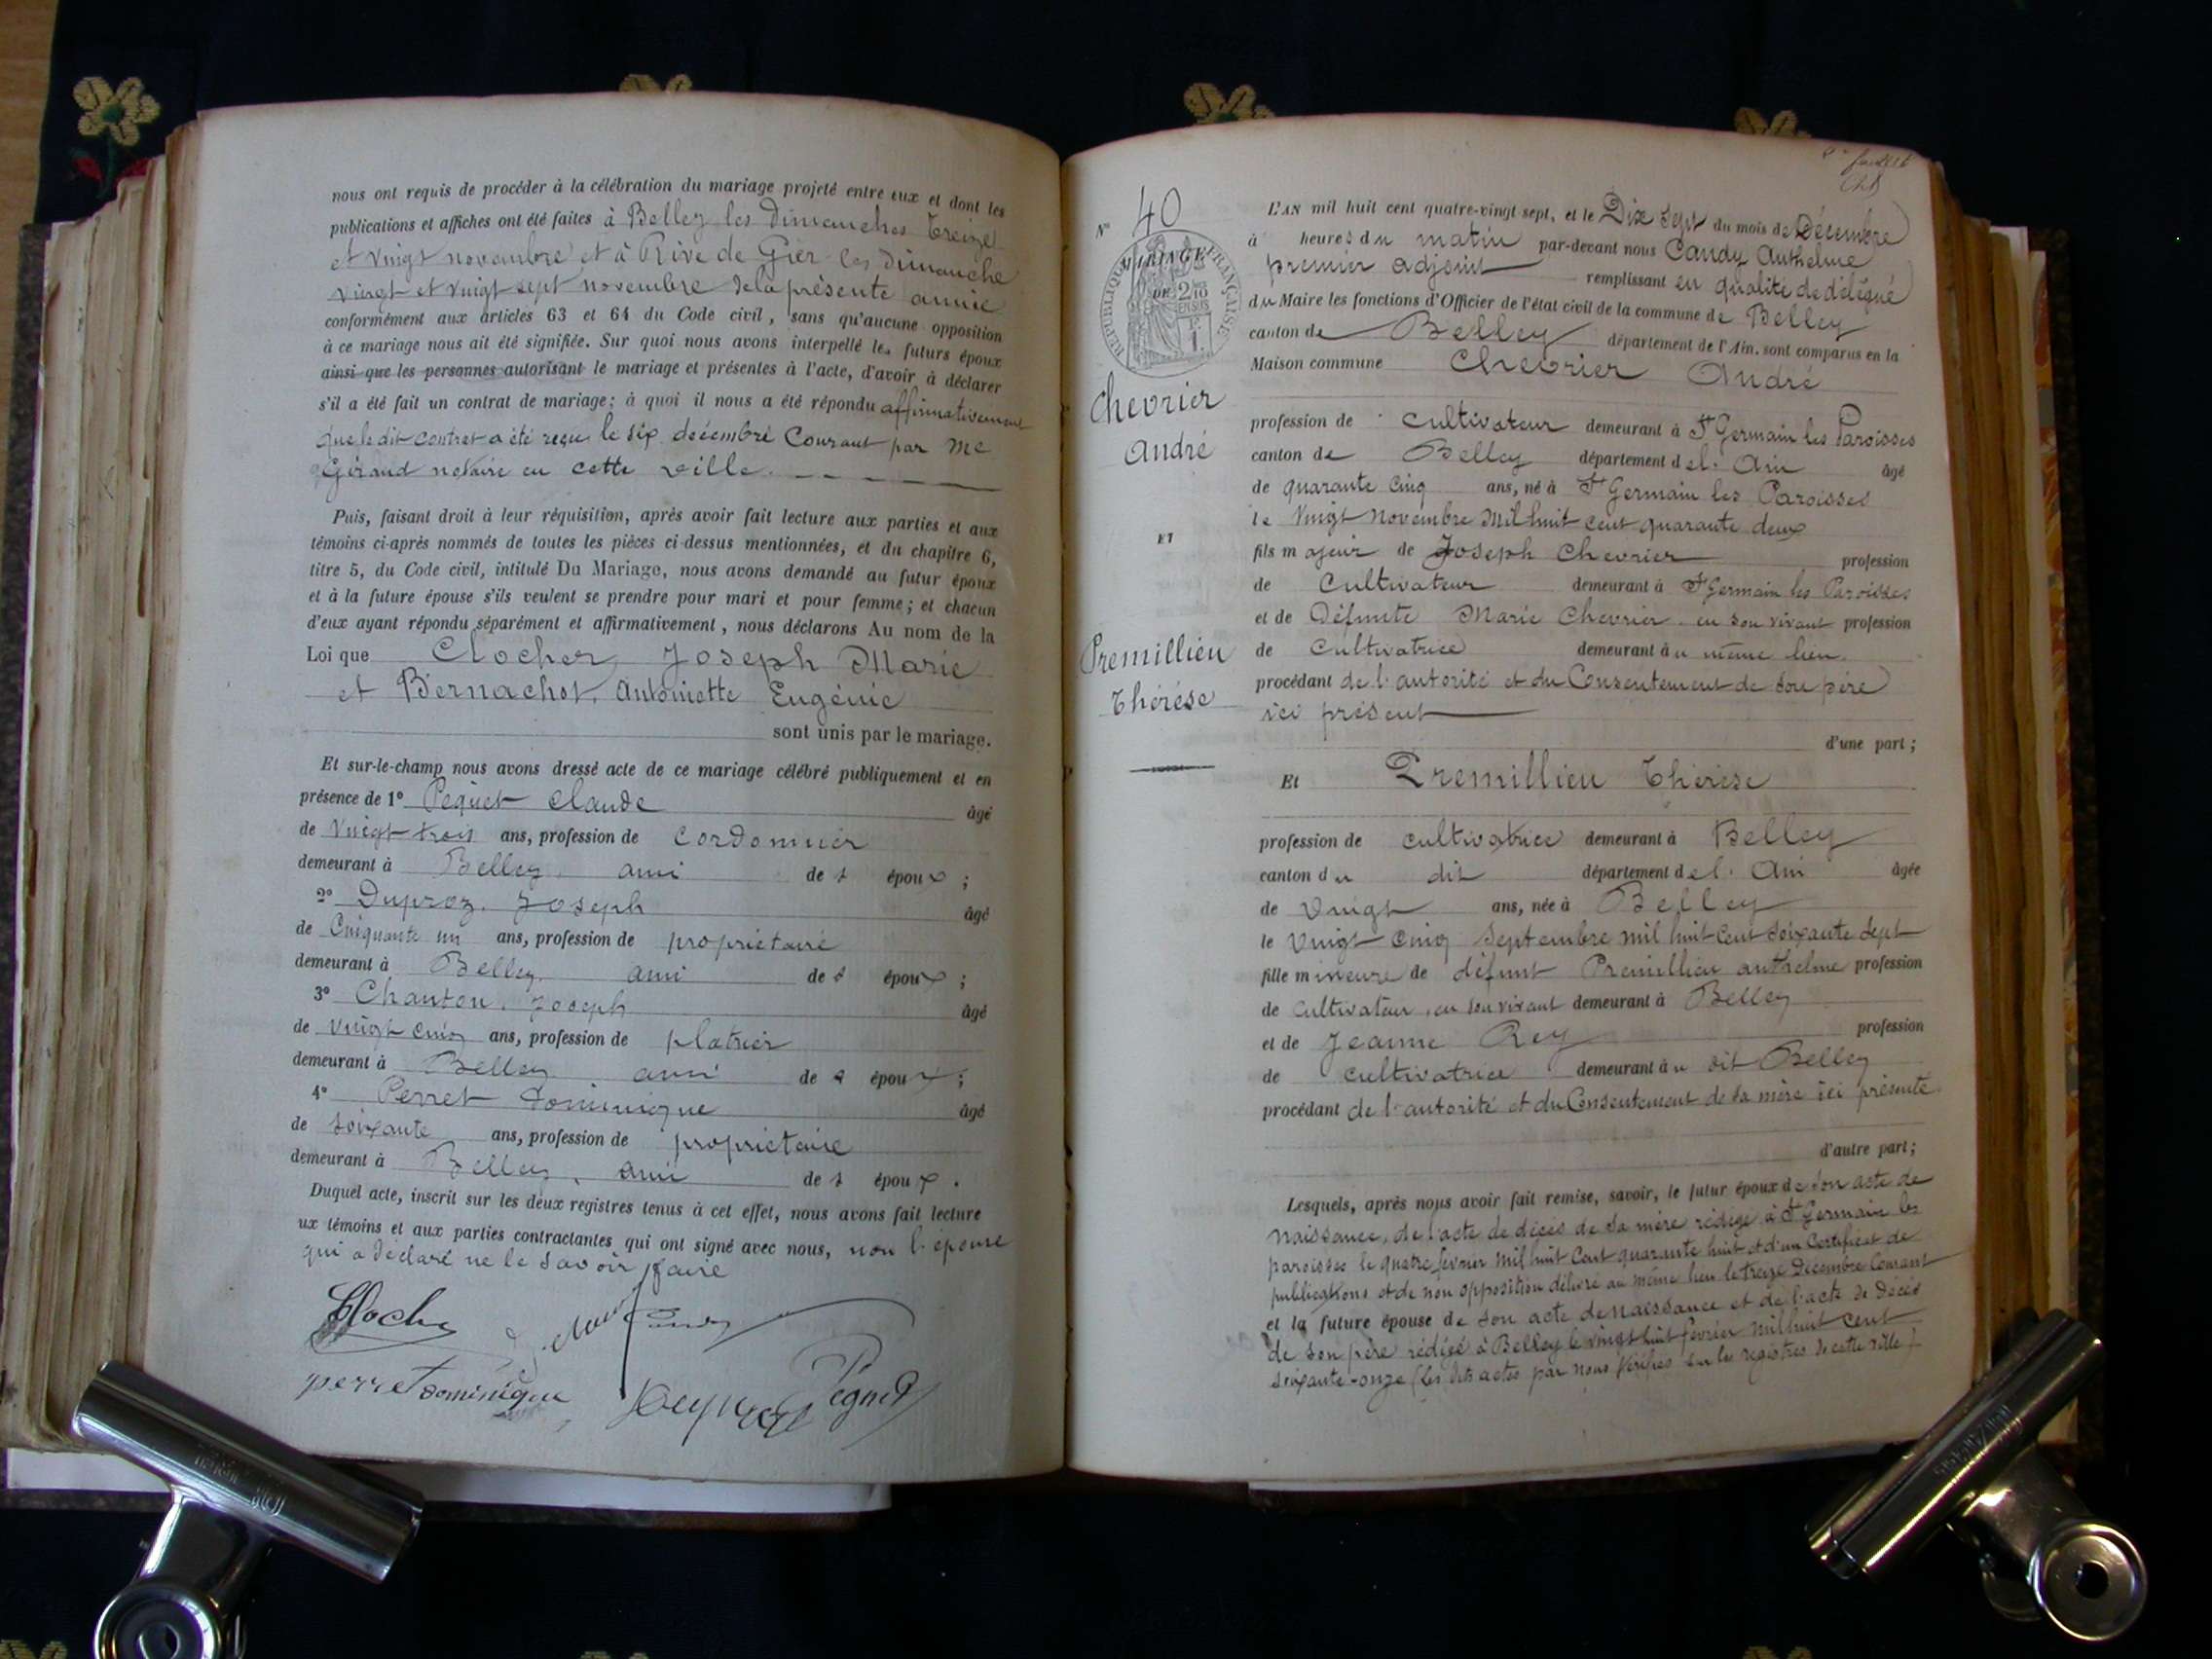 nous ont requis de procéder à la célébration du mariage projeté entre eux et dont les
publications et affiches ont été faites à Belley les Dimanches Treize
et Vingt novembre et à Rive de Gier les Dimanche
Vingt et Vingt sept novembre de la présente année
conformément aux articles 63 et 64 du Code civil, sans qu'aucune opposition
à ce mariage nous ait été signifiée. Sur quoi nous avons interpellé les futurs époux
ainsi que les personnes autorisant le mariage et présentes à l'acte, d'avoir à déclarer
s'il a été fait un contrat de mariage; à quoi il nous a été répondu affirmativement
que le dit contrat a été reçu le six décembre Courant par Me
Géraud notaire en cette ville.
Puis, faisant droit à leur réquisition, après avoir fait lecture aux parties et aux
témoins ci-après nommés de toutes les pièces ci-dessus mentionnées, et du chapitre 6,
titre 5, du Code civil, intitulé Du Mariage, nous avons demandé au futur époux
et à la future épouse s'ils veulent se prendre pour mari et pour femme; et chacun
d'eux ayant répondu séparément et affirmativement, nous déclarons Au nom de la
Loi que Clocher, Joseph Marie
et Bernachot, Antoinette Eugénie
sont unis par le mariage.
Et sur-le-champ nous avons dressé acte de ce mariage célébré publiquement et en
présence de 1° Pequet Claude âgé
de Vingt trois ans, profession de Cordonnier
demeurant à Belley, ami de s époux ;
2° Duproz, Joseph âgé
de Cinquante un ans, profession de propriétaire
demeurant à Belley, ami de s époux ;
3° Chanton, Joseph âgé
de Vingt cinq ans, profession de platrier
demeurant à Belley ami de s époux ;
4° Perret Dominique âgé
de soixante ans, profession de propriétaire
demeurant à Belley, ami de s époux .
Duquel acte, inscrit sur les deux registres tenus à cet effet, nous avons fait lecture
ux témoins et aux parties contractantes qui ont signé avec nous, non l'épouse
qui a déclaré ne le savoir faire
perret Dominique
N° 40
MARIAGE
RÉPUBLIQUE FRANÇAISE
Chevrier
André
ET
Premillieu
Thérèse
L'AN mil huit cent quatre-vingt sept, et le Dix sept du mois de Décembre
à heures du matin par-devant nous Candy Anthelme
premier adjoint remplissant en qualité de délégué
du Maire les fonctions d'Officier de l'état civil de la commune de Belley
canton de Belley département de l'Ain. sont comparus en la
Maison commune Chevrier André
profession de Cultivateur demeurant à St Germain les Paroisses
canton de Belley département de l'Ain âgé
de quarante cinq ans, né à St Germain les Paroisses
le Vingt Novembre Mil huit cent quarante deux
fils majeur de Joseph Chevrier profession
de Cultivateur demeurant à St Germain les Paroisses
et de Défunte Marie Chevrier en son vivant profession
de Cultivatrice demeurant au même lieu.
procédant de l'autorité et du Consentement de son père
ici présent
d'une part ;
Et Premillieu Thérèse
profession de cultivatrice demeurant à Belley
canton du dit département de l'Ain âgée
de Vingt ans, née à Belley
le Vingt cinq Septembre mil huit Cent soixante sept
fille mineure de défunt Premillieu anthelme profession
de Cultivateur, en son vivant demeurant à Belley
et de Jeanne Rey profession
de cultivatrice demeurant au dit Belley
procédant de l'autorité et du Consentement de sa mère ici présente
d'autre part ;
Lesquels, après nous avoir fait remise, savoir, le futur époux de son acte de
naissance, de l'acte de décès de sa mère rédigé à St Germain les
paroisses le quatre février mil huit Cent quarante huit et d'un Certificat de
publications et de non opposition délivré au même lieu le treize Décembre Courant
et la future épouse de son acte de naissance et de l'acte de Décès
de son père rédigé à Belley le vingt huit février Mil huit Cent
soixante-onze (Les dits actes par nous Vérifiés sur les registres de cette ville)